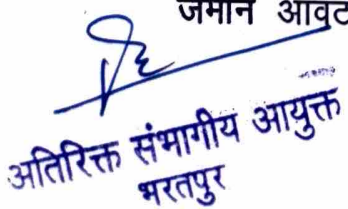 जमीन आवट
अतिरिक्त संभागीय आयुक्त
भरतपुर